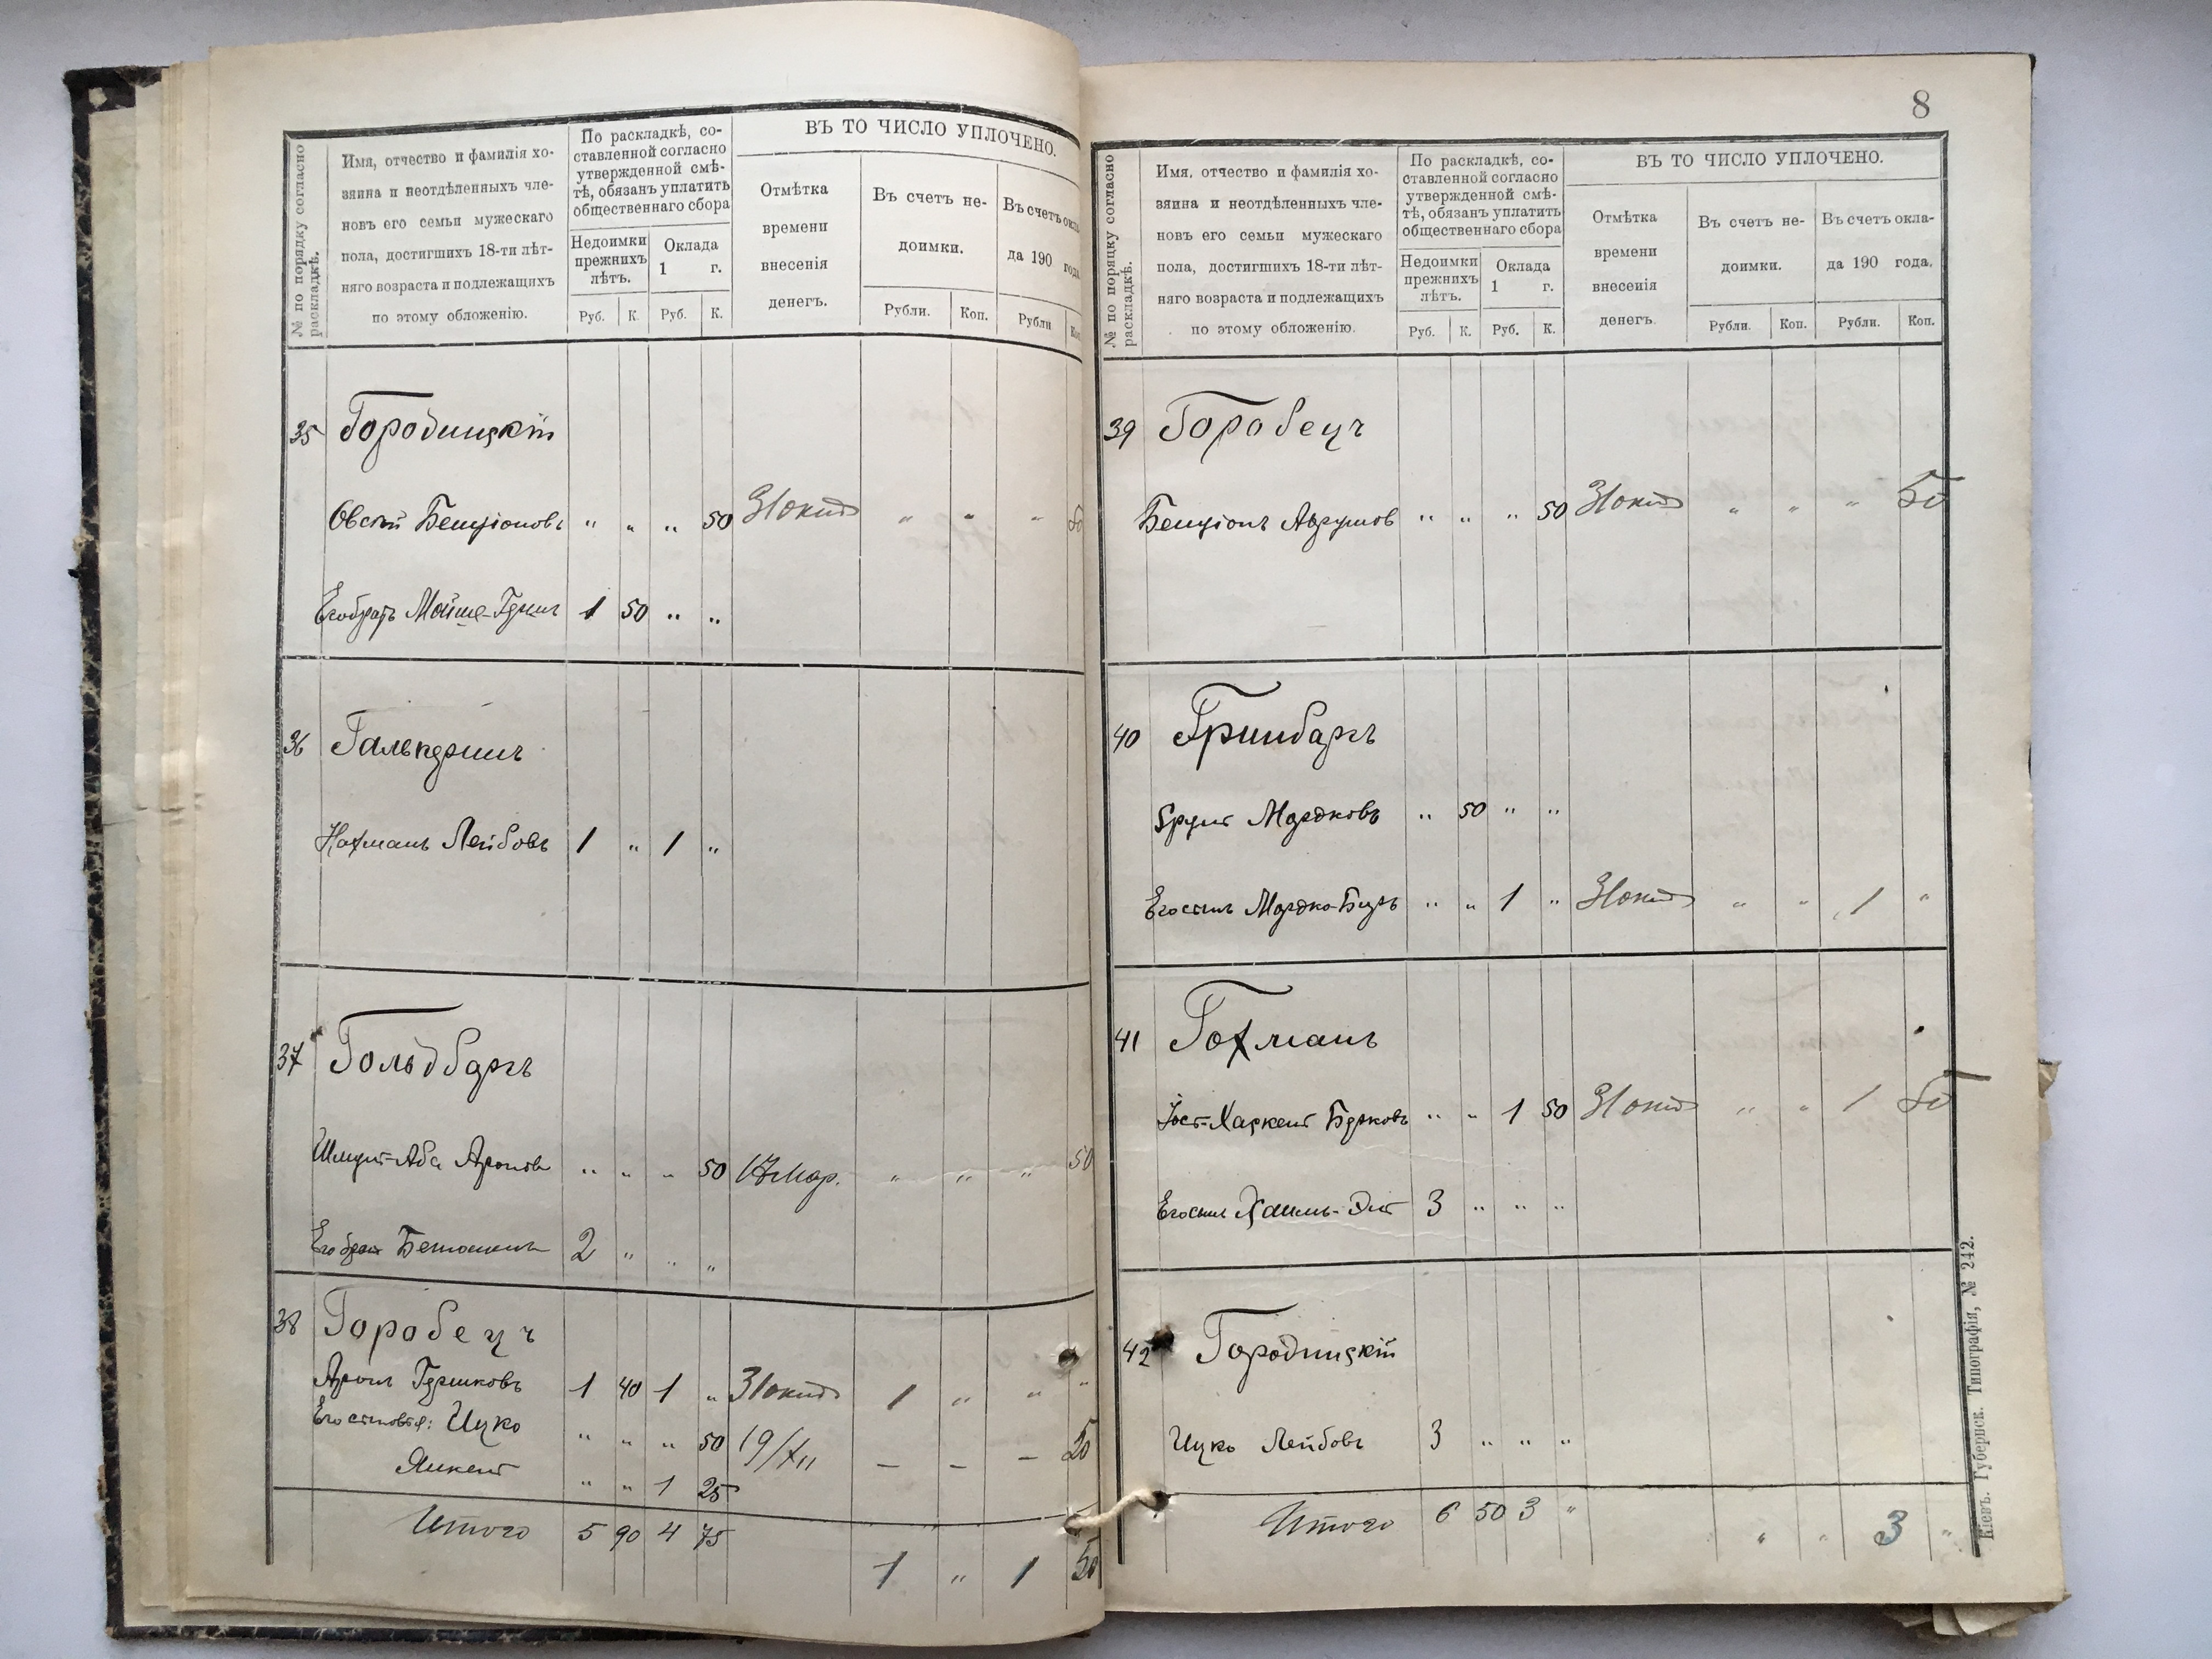 № по порядку согласно раскладкѣ.
Имя, отчество и фамилія хо-
зяина и неотдѣленныхъ чле-
новъ его семьи мужескаго
пола, достигшихъ 18-ти лѣт-
няго возраста и подлежащихъ
по этому обложенію.
По раскладкѣ, со-
ставленной согласно
утвержденной смѣ-
тѣ, обязанъ уплатить
общественнаго сбора
Недоимки
прежнихъ
лѣтъ.
Оклада
1 г.
Руб. К. Руб. К.
ВЪ ТО ЧИСЛО УПЛОЧЕНО.
Отмѣтка
времени
внесенія
денегъ.
Въ счетъ не-
доимки.
Въ счетъ окла-
да 190 года
Рубли. Коп. Рубли Коп.
35 Городицкій
Овсій Бенціоновъ " " " 50 31 окт " " " 50
Его братъ Мойше-Гершъ 1 50 " "
36 Гальперинъ
Нахманъ Лейбовъ 1 " 1 "
37 Гольдбергъ
Шмуль-Аба Ароновъ " " " 50 17 Мар. " " " 50
Его братъ 2 " " "
38 Горобецъ
Аронъ Гершковъ 1 40 1 " 31 окт 1 " " "
Его сыновья: Ицко " " " 50 19/XII – – – 50
Янкель " " 1 25
Итого 5 90 4 75
1 " 1 50
8
№ по порядку согласно раскладкѣ.
Имя, отчество и фамилія хо-
зяина и неотдѣленныхъ чле-
новъ его семьи мужескаго
пола, достигшихъ 18-ти лѣт-
няго возраста и подлежащихъ
по этому обложенію.
По раскладкѣ, со-
ставленной согласно
утвержденной смѣ-
тѣ, обязанъ уплатить
общественнаго сбора
Недоимки
прежнихъ
лѣтъ.
Оклада
1 г.
Руб. К. Руб. К.
ВЪ ТО ЧИСЛО УПЛОЧЕНО.
Отмѣтка
времени
внесенія
денегъ.
Въ счетъ не-
доимки.
Въ счетъ окла-
да 190 года.
Рубли. Коп. Рубли. Коп.
39 Горобецъ
Бенціонъ Аврумов " " " 50 31 окт " " " 50
40 Гринбергъ
Сруль Мордковъ " 50 " "
Его сынъ Мордко-Беръ " " 1 " 31 окт " " 1 "
41 Гохманъ
Берковъ " " 1 50 31 окт " " 1 50
Его сынъ 3 " " "
42 Городицкій
Ицко Лейбовъ 3 " " "
Итого 6 50 3 "
" " 3 "
Кіевъ. Губернск. Типографія, № 242.